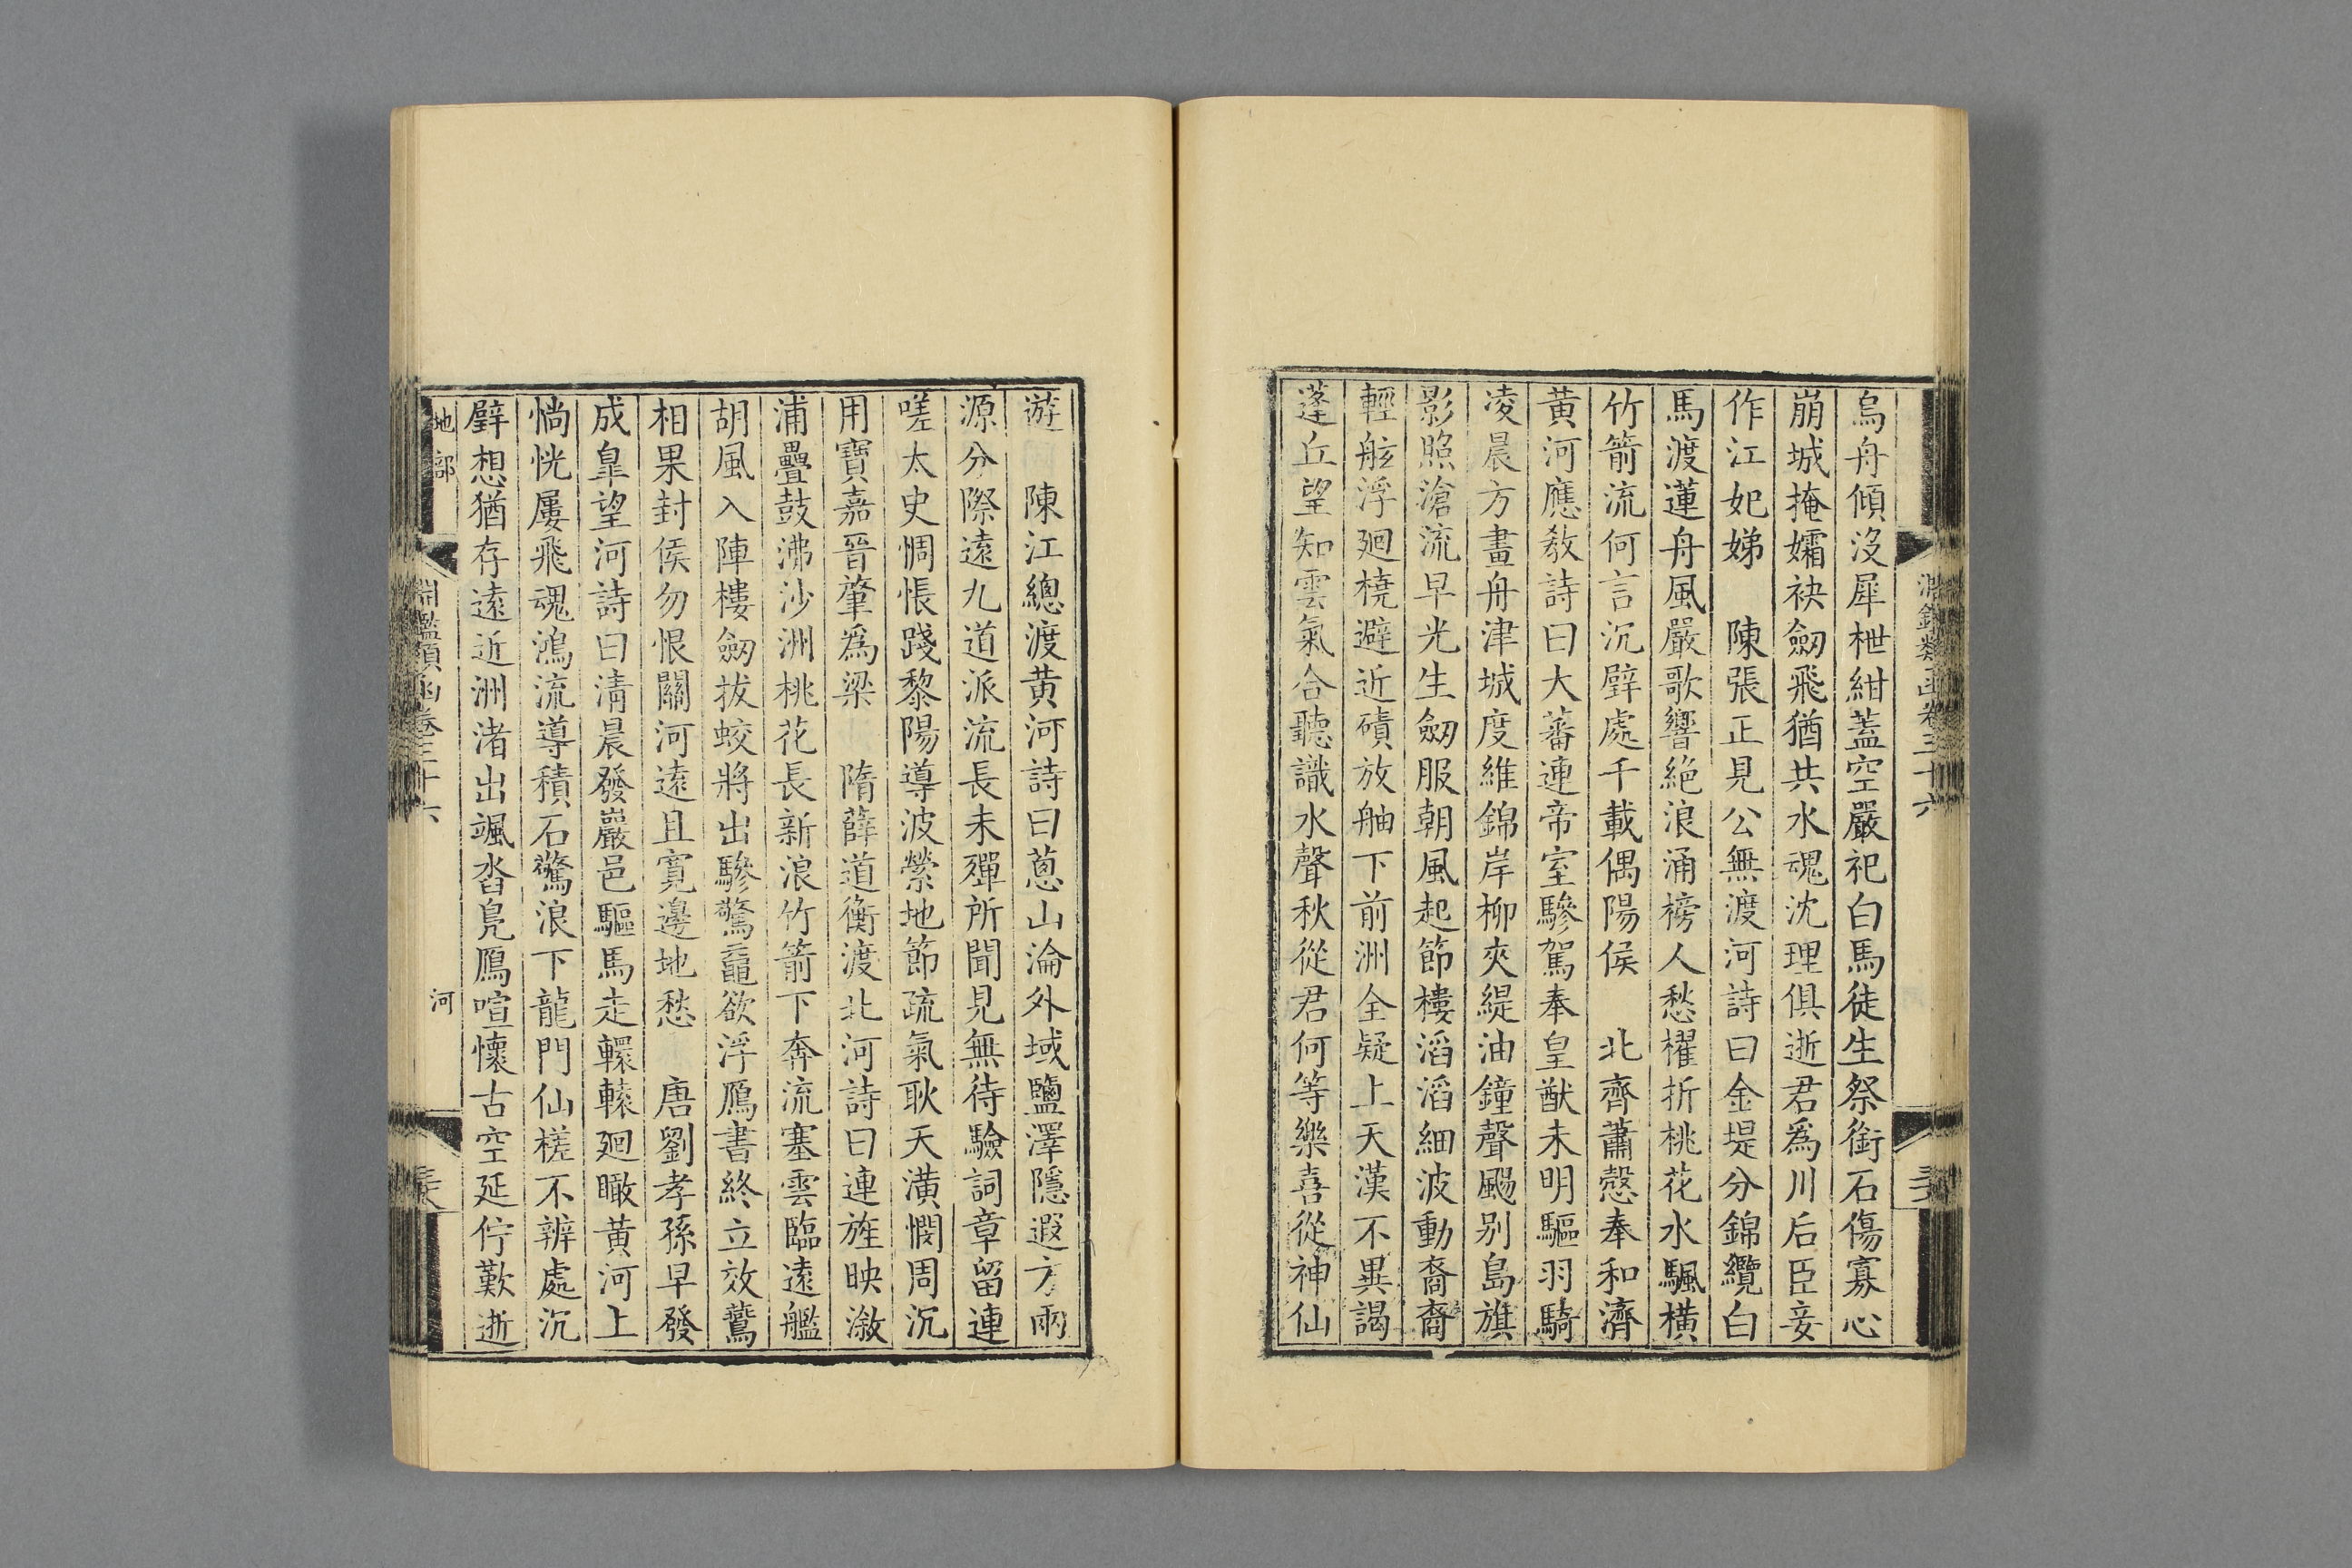 烏舟傾沒犀枻紺蓋空嚴祀白馬徒生祭銜石傷寡心
崩城掩孀袂劒飛猶共水魂沈理俱逝君爲川后臣妾
作江妃娣　陳張正見公無渡河詩曰金堤分錦纜白
馬渡蓮舟風嚴歌響絶浪涌榜人愁櫂折桃花水颿橫
竹箭流何言沉璧處千載偶陽侯　北齊蕭愨奉和濟
黃河應教詩曰大蕃連帝室驂駕奉皇猷未明驅羽騎
凌晨方畫舟津城度維錦岸柳夾緹油鐘聲颺別島旗
影照滄流早光生劒服朝風起節樓滔滔細波動裔裔
輕舷浮廻橈避近磧放舳下前洲全疑上天漢不異謁
蓬丘望知雲氣合聽識水聲秋從君何等樂喜從神仙
遊　陳江總渡黃河詩曰蔥山淪外域鹽澤隱遐方兩
源分際遠九道派流長未殫所聞見無待驗詞章留連
嗟太史惆悵踐黎陽導波縈地節疏氣耿天潢憫周沉
用寶嘉晉肇爲梁　隋薛道衡渡北河詩曰連旌映溆
浦疊鼓沸沙洲桃花長新浪竹箭下奔流塞雲臨遠艦
胡風入陣樓劒拔蛟將出驂驚黿欲浮鴈書終立效鷰
相果封侯勿恨關河遠且寬邊地愁　唐劉孝孫早發
成皐望河詩曰清晨發巖邑驅馬走轘轅廻瞰黃河上
惝恍屢飛魂鴻流導積石驚浪下龍門仙槎不辨處沉
璧想猶存遠近洲渚出颯沓鳧鴈喧懷古空延佇歎逝
地部
淵鑑類函卷三十六
河